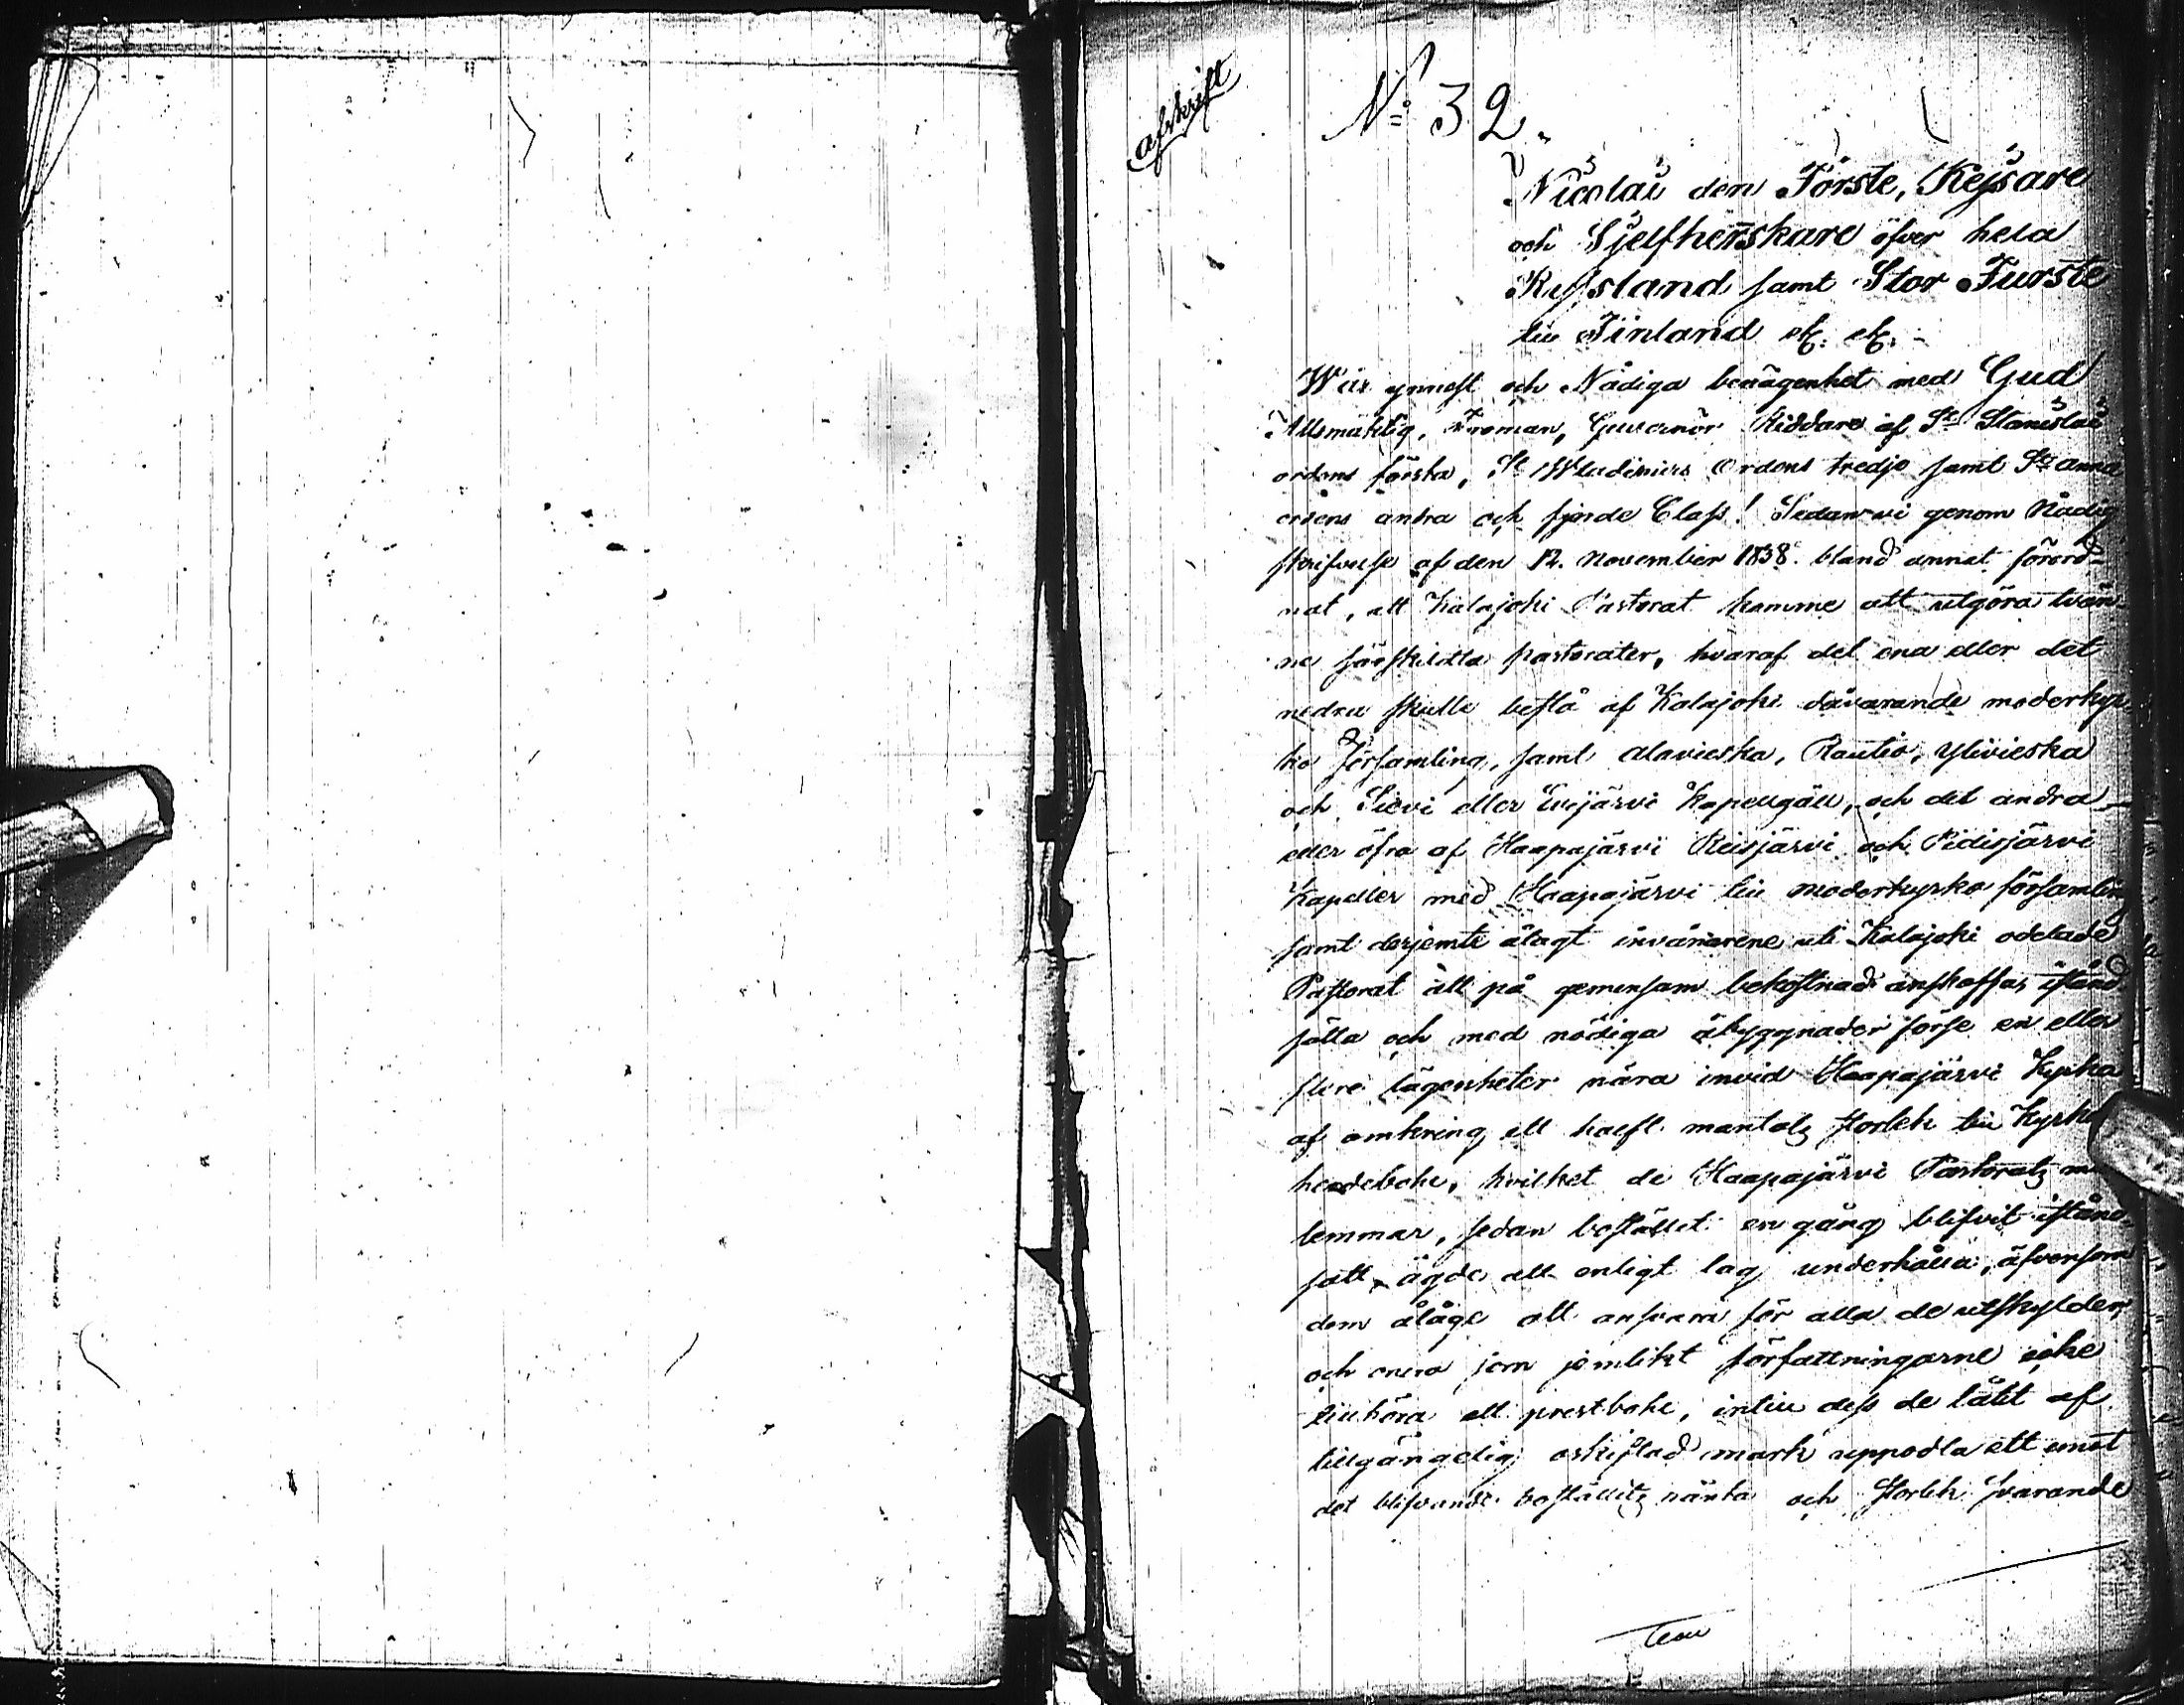 afskrift
№ 32.
Nicolai den Förste, Kejsare
och Sjelfherrskare öfver hela
Ryssland samt Stor Furste
till Finland etc. etc.
Wår ynnest och Nådiga benägenhet med Gud
Allsmäktig, Troman, Guvernör Riddare af St Stanislai
ordens första, St Wladimirs Ordens tredje samt St Anna
ordens andra och fjerde Class! Sedan vi genom Nådig
skrifvelse af den 12. November 1838. bland annat förord-
nat, att Kalajoki Pastorat komme att utgöra tvän-
ne särskildta pastorater, hvaraf det ena eller det
nedra skulle bestå af Kalajoki dåvarande moderkyr-
ko Församling, samt Alavieska, Rautio, Ylivieska
och Sievi eller Evijärvi Kapellgäll, och det andra
eller öfra af Haapajärvi Reisjärvi och Pidisjärvi
Kapeller med Haapajärvi till moderkyrko församling
samt derjemte ålagt invånarene uti Kalajoki odelade
Pastorat att på gemensam bekostnad anskaffa, istånd
sätta och med nödiga åbyggnader förse en eller
flere lägenheter nära invid Haapajärvi Kyrka
af omkring ett halft mantals storlek till Kyrko
herdebohl, hvilket de Haapajärvi Pastorats
lemmar, sedan bostället en gång blifvit istånd-
satt, ägde att enligt lag underhålla, äfvensom
dem ålåge att ansvara för alla de utskylder
och onera som jemlikt författningarne icke
tillhöra ett prestbohl, intill dess de låtit af
tillgängelig oskiftad mark uppodla ett emot
det blifvande boställets ränta och storlek svarande